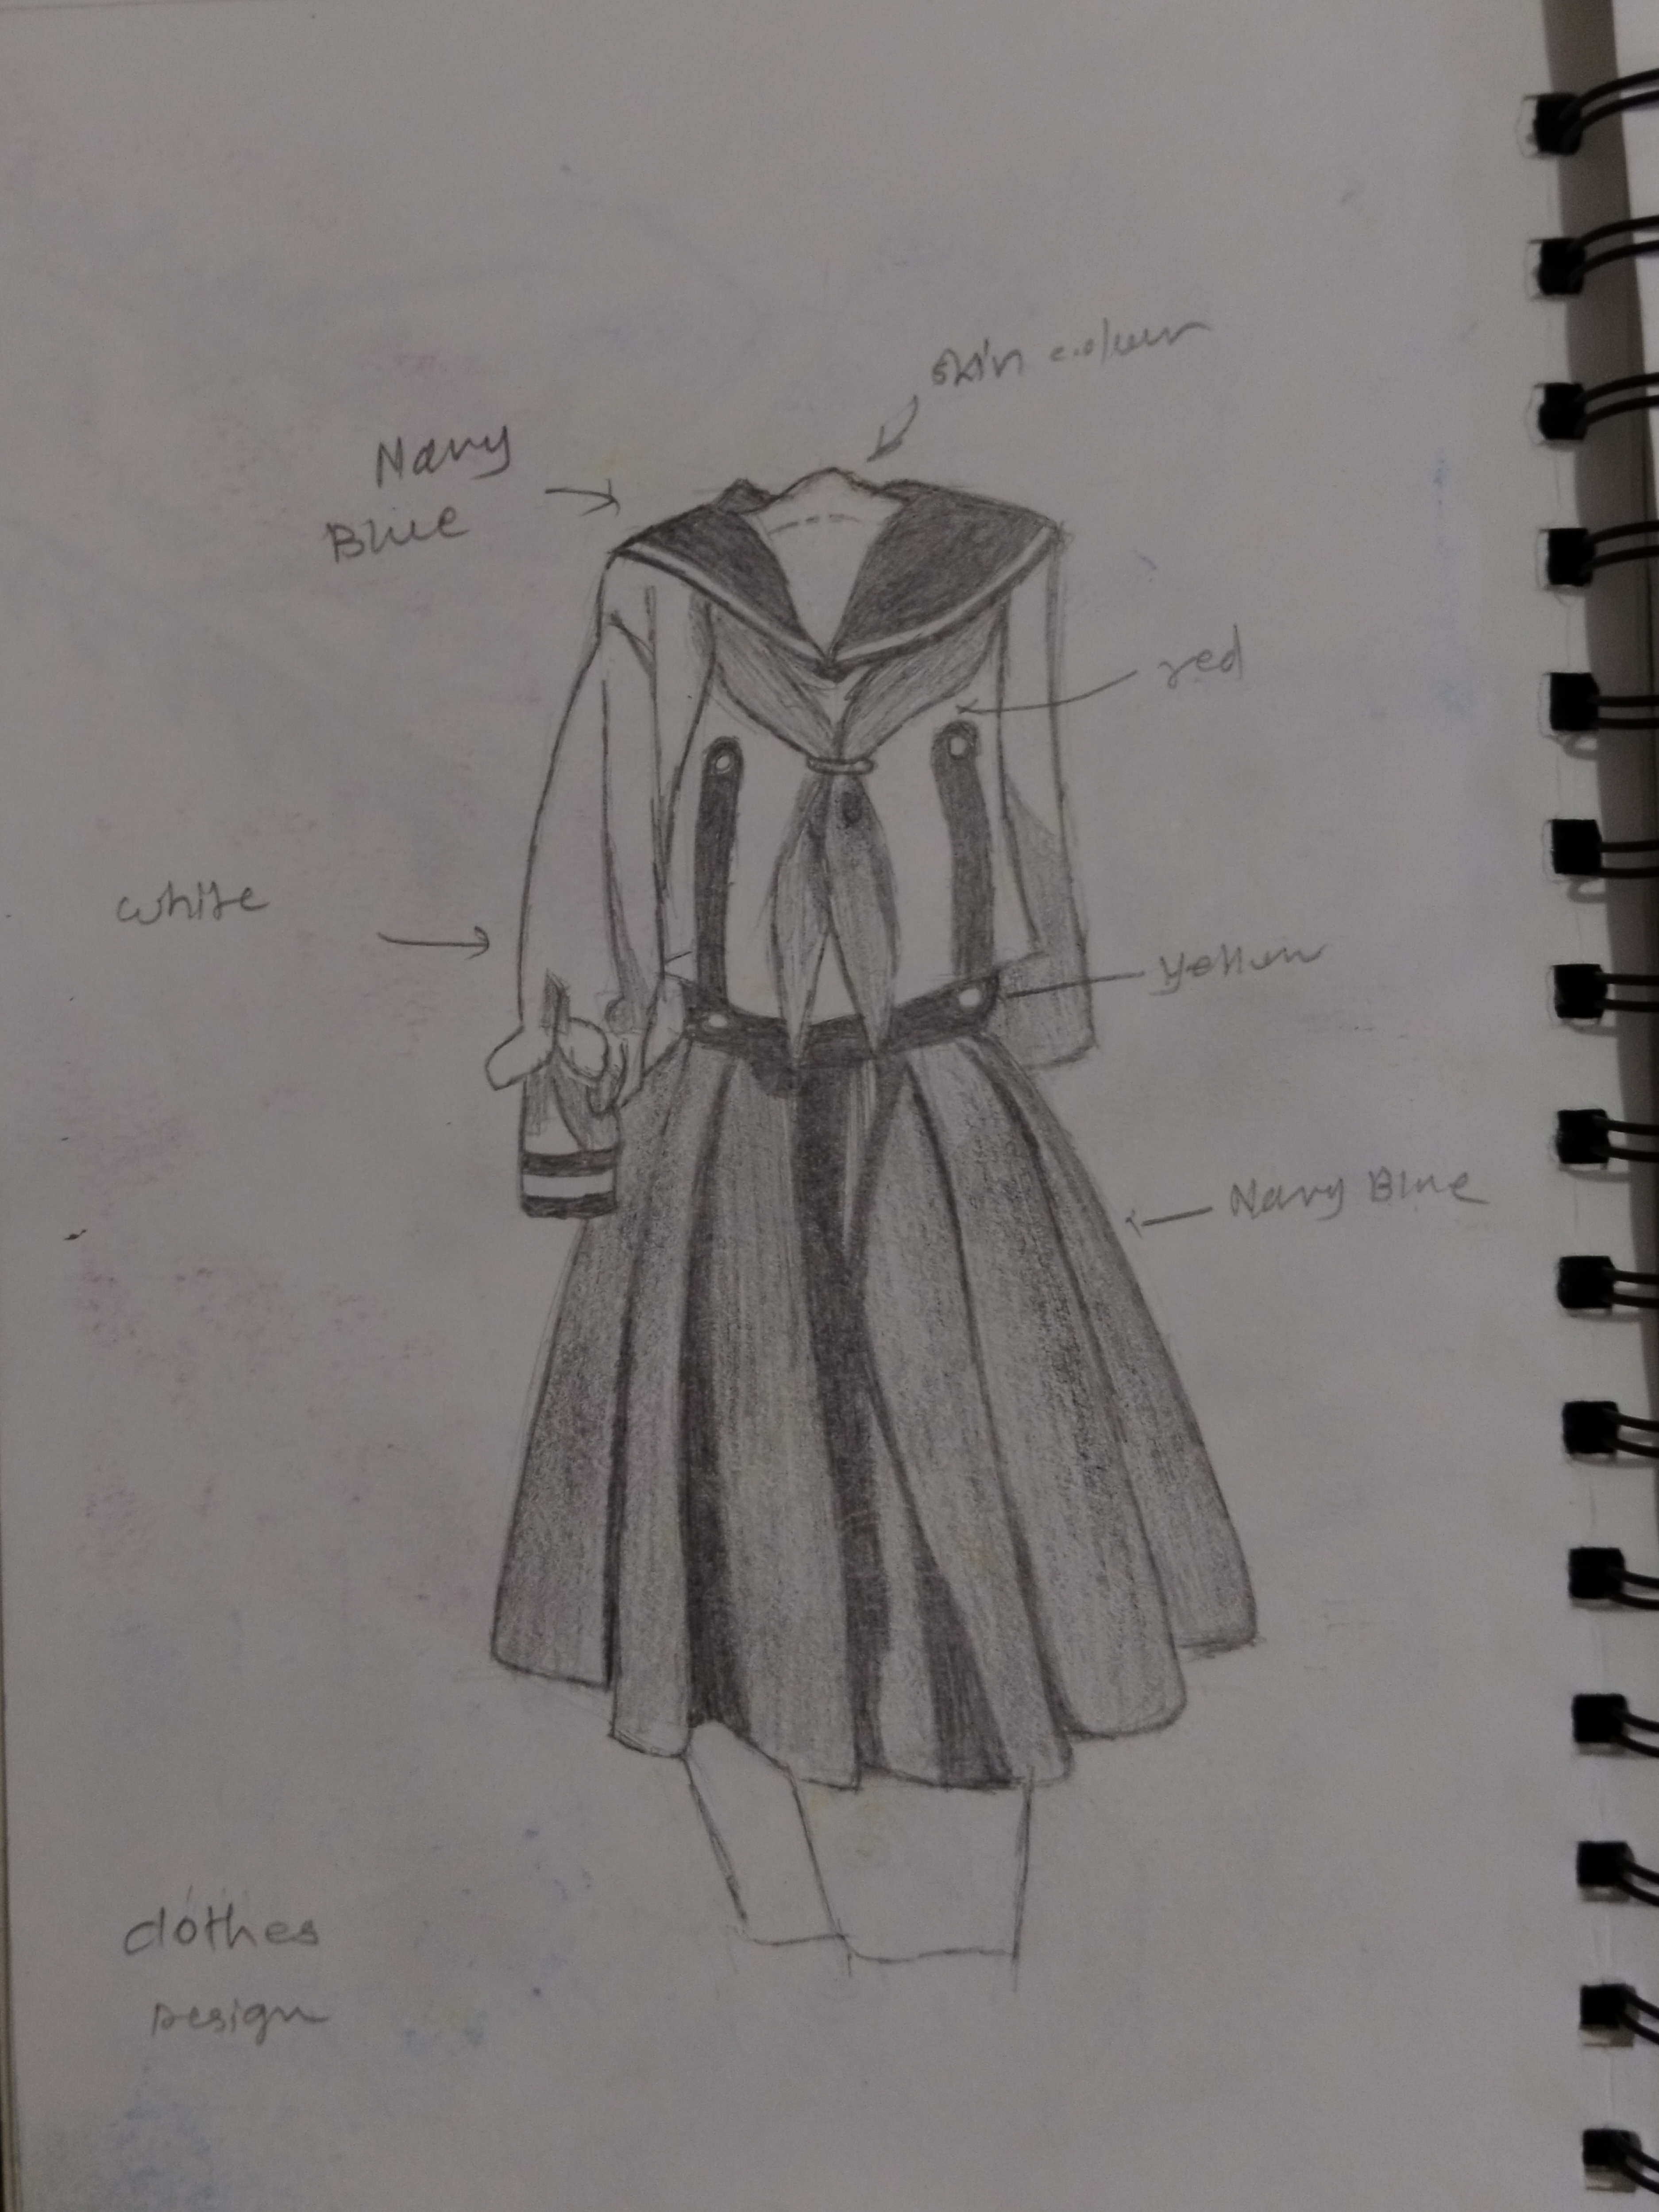 skin colour
Navy
Blue
red
white
yellow
Navy Blue
clothes
Design